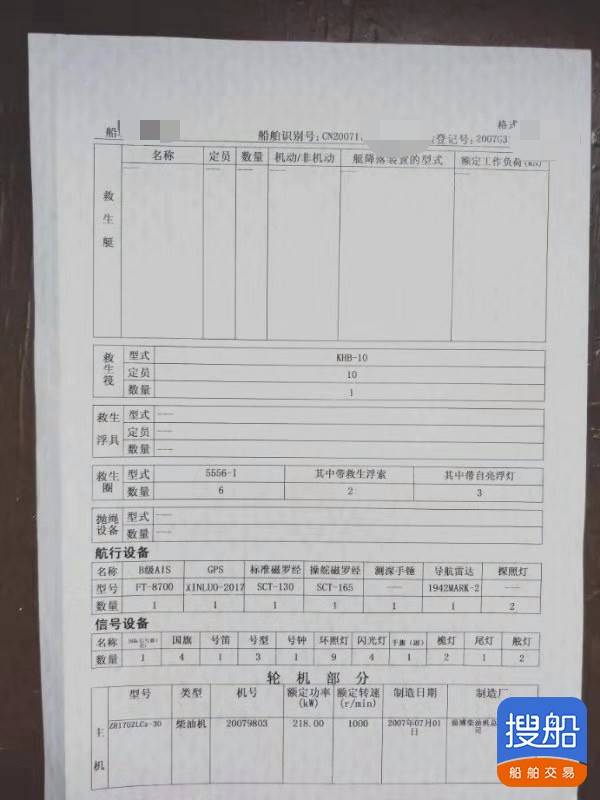 格式
船 船舶识别号:CN20071 登记号:2007G3
名称 定员 数量 机动/非机动 艇降落装置的型式 额定工作负荷(kN)
救生艇 --- --- --- --- --- ---
救生筏 型式 KHB-10
定员 10
数量 1
救生浮具 型式 ---
定员 ---
数量 ---
救生圈 型式 5556-1 其中带救生浮索 其中带自亮浮灯
数量 6 2 3
抛绳设备 型式 ---
数量 ---
航行设备
名称 B级AIS GPS 标准磁罗经 操舵磁罗经 测深手锤 导航雷达 探照灯
型号 FT-8700 XINLUO-2017 SCT-130 SCT-165 --- 1942MARK-2 ---
数量 1 1 1 1 1 1 2
信号设备
名称 国旗 号笛 号型 号钟 环照灯 闪光灯 手旗(副) 桅灯 尾灯 舷灯
数量 1 4 1 3 1 9 4 1 2 1 2
轮机部分
型号 类型 机号 额定功率(kW) 额定转速(r/min) 制造日期 制造厂
主机 Z8170ZLCa-30 柴油机 20079803 218.00 1000 2007年07月01日 淄博柴油机总 司
搜船
船舶交易